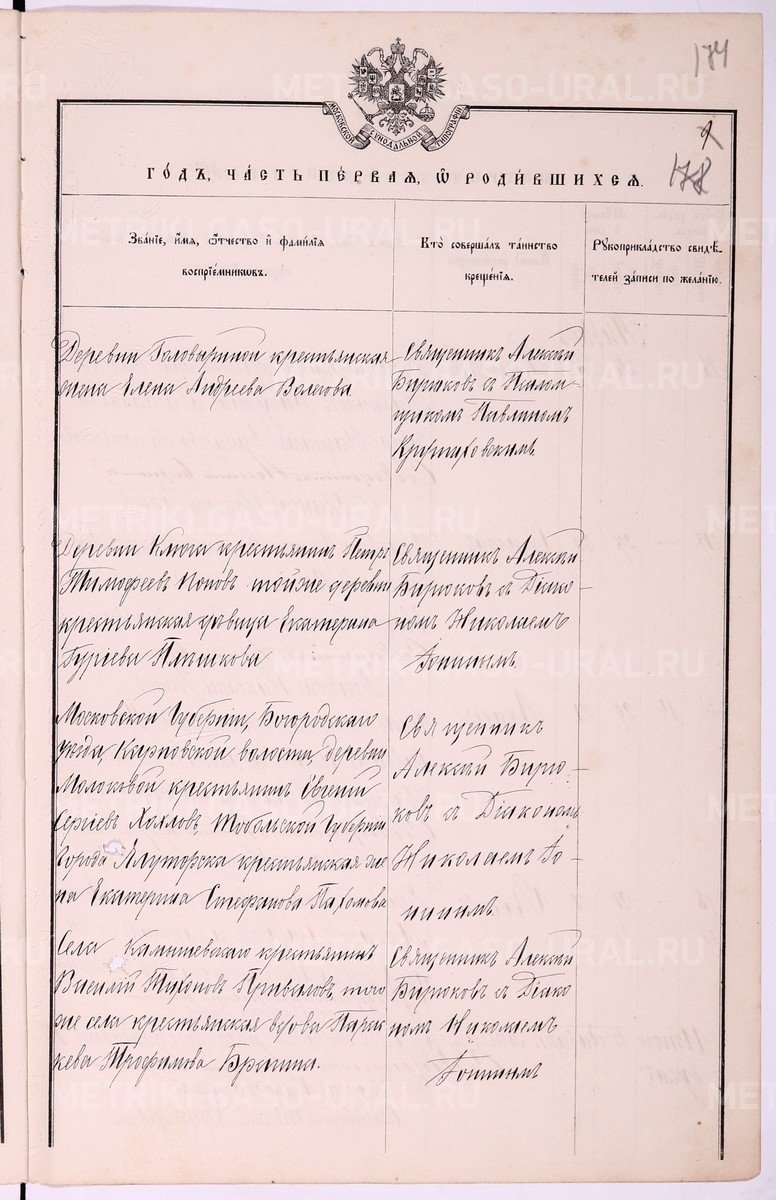 174
178
МОСКОВСКОЙ СѴНОДАЛЬНОЙ ТИПОГРАФІИ
ГО́ДЪ, ЧА́СТЬ ПЕ́РВАЯ, Ѽ РОДИ́ВШИХСЯ.
Зва́нїе, и҆́мя, ѻ҆́тчество и҆ фами́лїя
воспрїе́мниковъ.
Кто̀ соверша́лъ та́инство
креще́нїя.
Рꙋкоприкла́дство свидѣ́-
телей за́писи по жела́нїю.
Деревни Головыриной крестьянская
жена Елена Андреева Волегова.
Священникъ Алексѣй
Бирюковъ съ Псалом-
щикомъ Павлиномъ
Деревни Ключи крестьянинъ Петръ
Тимофеевъ Поповъ тойже деревни
крестьянская дѣвица Екатерина
Гуріева Плѣшкова
Священникъ Алексѣй
Бирюковъ съ Діако-
номъ Николаемъ
Топинымъ.
Московской Губерніи, Богородскаго
уѣзда, Карповской волости, деревни
Молоковой крестьянинъ Евгеній
Сергіевъ Хохловъ, Тобольской Губерніи
Города Ялуторска крестьянская же-
на Екатерина Стефанова Пахомова
Священникъ
Алексѣй Бирю-
ковъ съ Діакономъ
Николаемъ То-
пинымъ
Села Камышевскаго крестьянинъ
Василій Тихоновъ Приваловъ, того
же села крестьянская вдова Парас
кева Трофимова Брагина.
Священникъ Алексѣй
Бирюковъ съ Діако
номъ Николаемъ
Топинымъ
METRIKI.GASO-URAL.RU